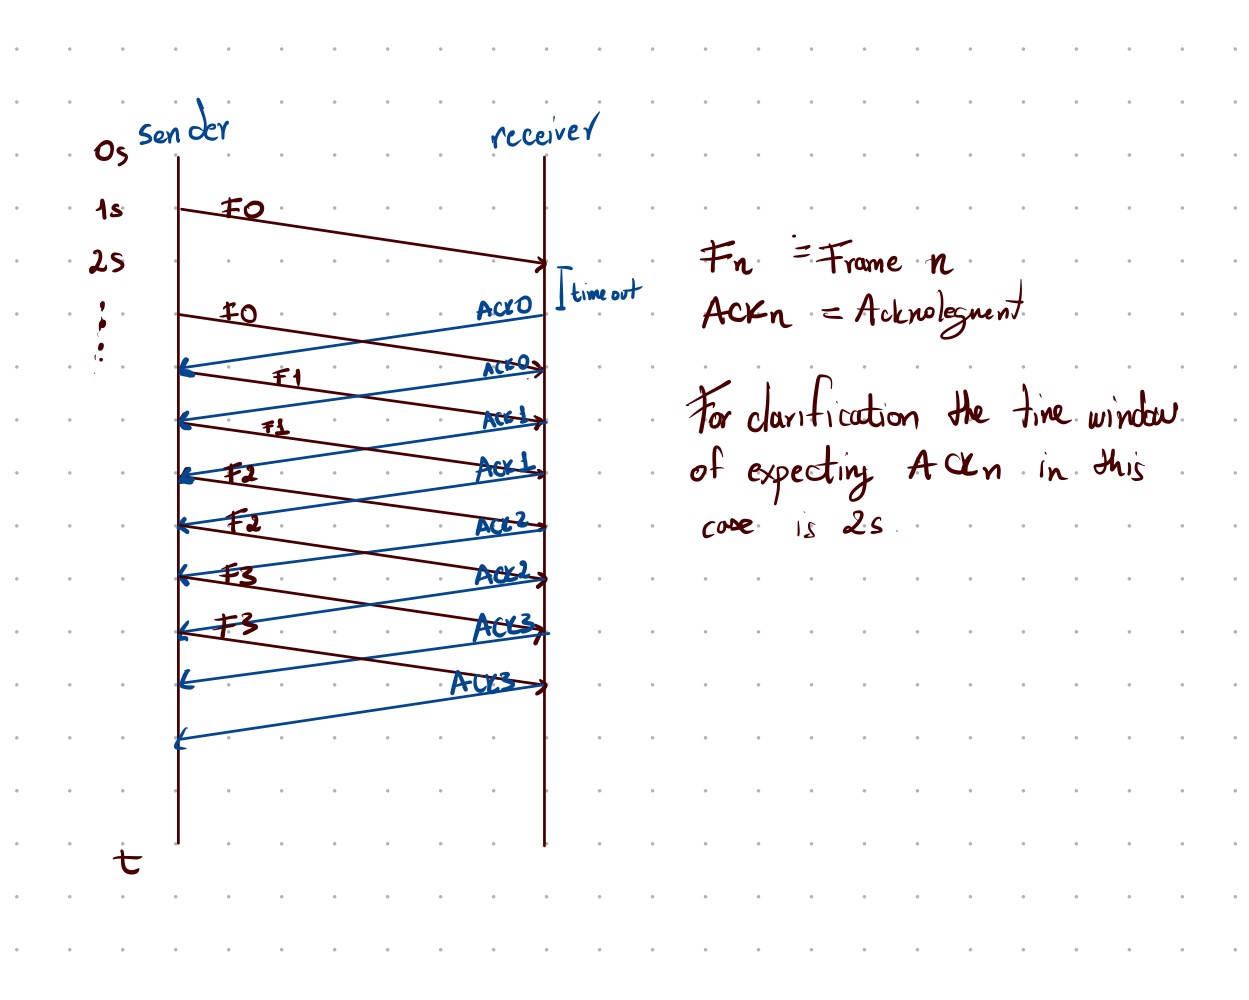 sender
receiver
0s
1s
F0
2s
time out
F0
ACK0
F1
ACK0
F1
ACK1
F2
ACK1
F2
ACK2
F3
ACK2
F3
ACK3
ACK3
t
Fn = Frame n
ACKn = Acknolegment
For clarification the time window
of expecting ACKn in this
case is 2s